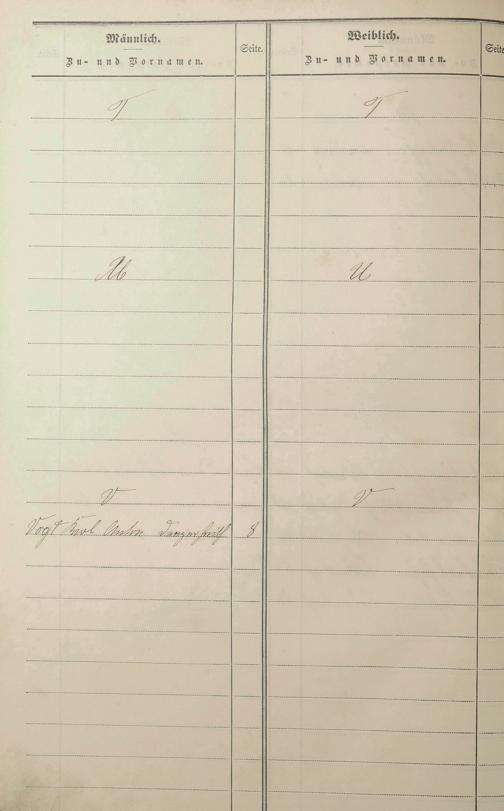 Männlich.
Zu- und Vornamen.
Seite.
Weiblich.
Zu- und Vornamen.
Seite
T
T
U
U
V
V
Vogt Karl Anton 8